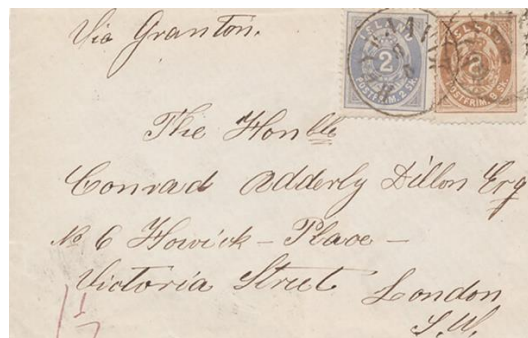 Via Granton.
ISLAND
2
POSTFRIM. 2 SK.
POSTFRIM. 8 SK.
The Honble
Conrad Adderly Dillon Esq
No 6 Howick – Place –
Victoria Street London
S.W.